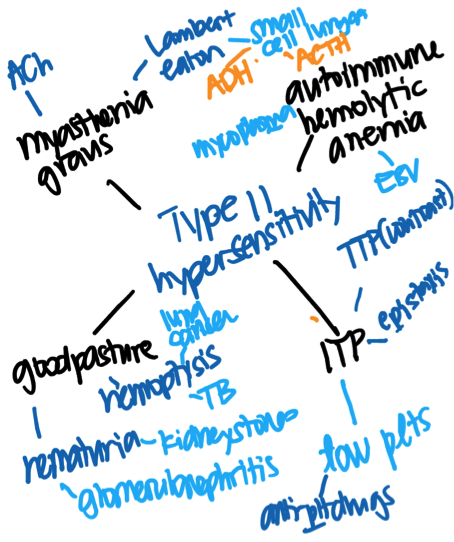 ACh
Lambert
eaton
small
cell lung ca
ADH
ACTH
myasthenia
gravis
mycoplasma
autoimmune
hemolytic
anemia
EBV
Type II
hypersensitivity
TTP (contrast)
epistaxis
ITP
goodpasture
lung
cancer
hemoptysis
TB
hematuria
kidney stones
glomerulonephritis
low plts
antiplt drugs